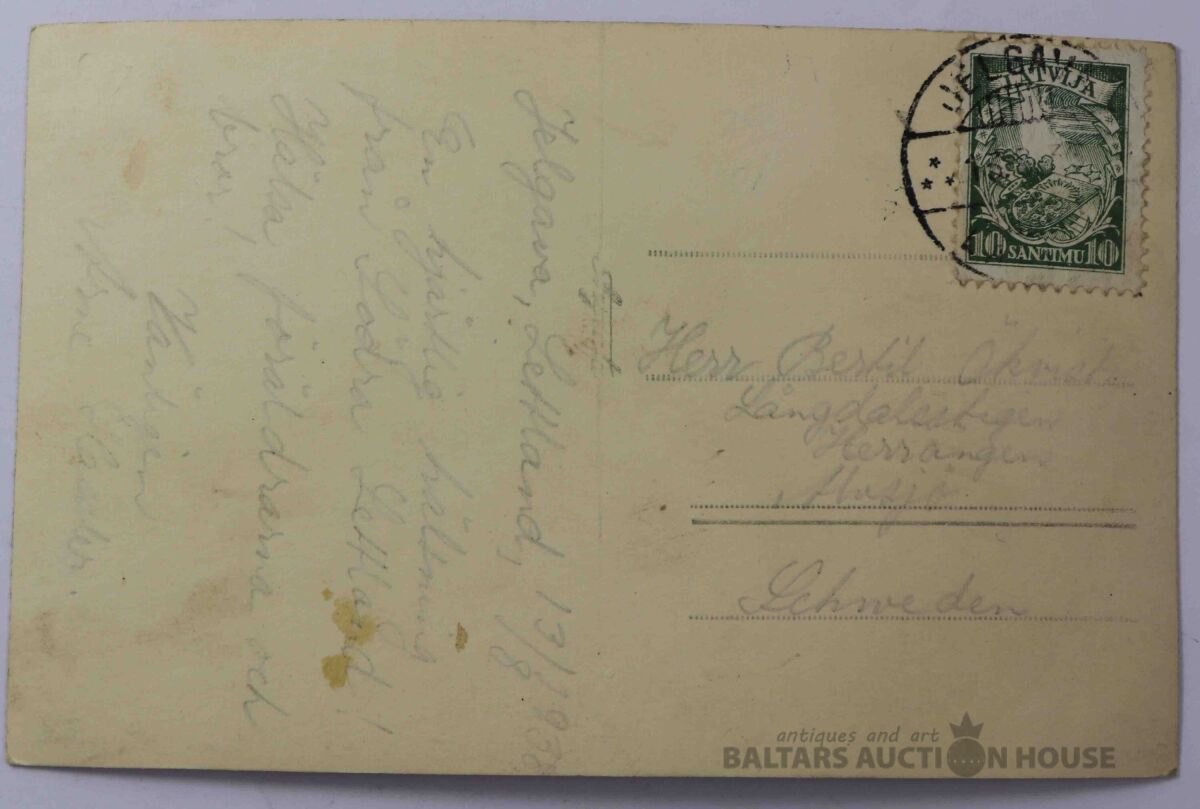 Jelgava, Lettland, 13/8 193
En hjärtlig hälsning
från Södra Lettland!
Hälsa föräldrarna och
bror,
Vänligen
Arne
JELGAVA
LATVIJA
10 SANTIMU 10
Herr Bertil Åkvist
Långdalsstigen
Herrängen
Älvsjö
Schweden
antiques and art
BALTARS AUCTION HOUSE